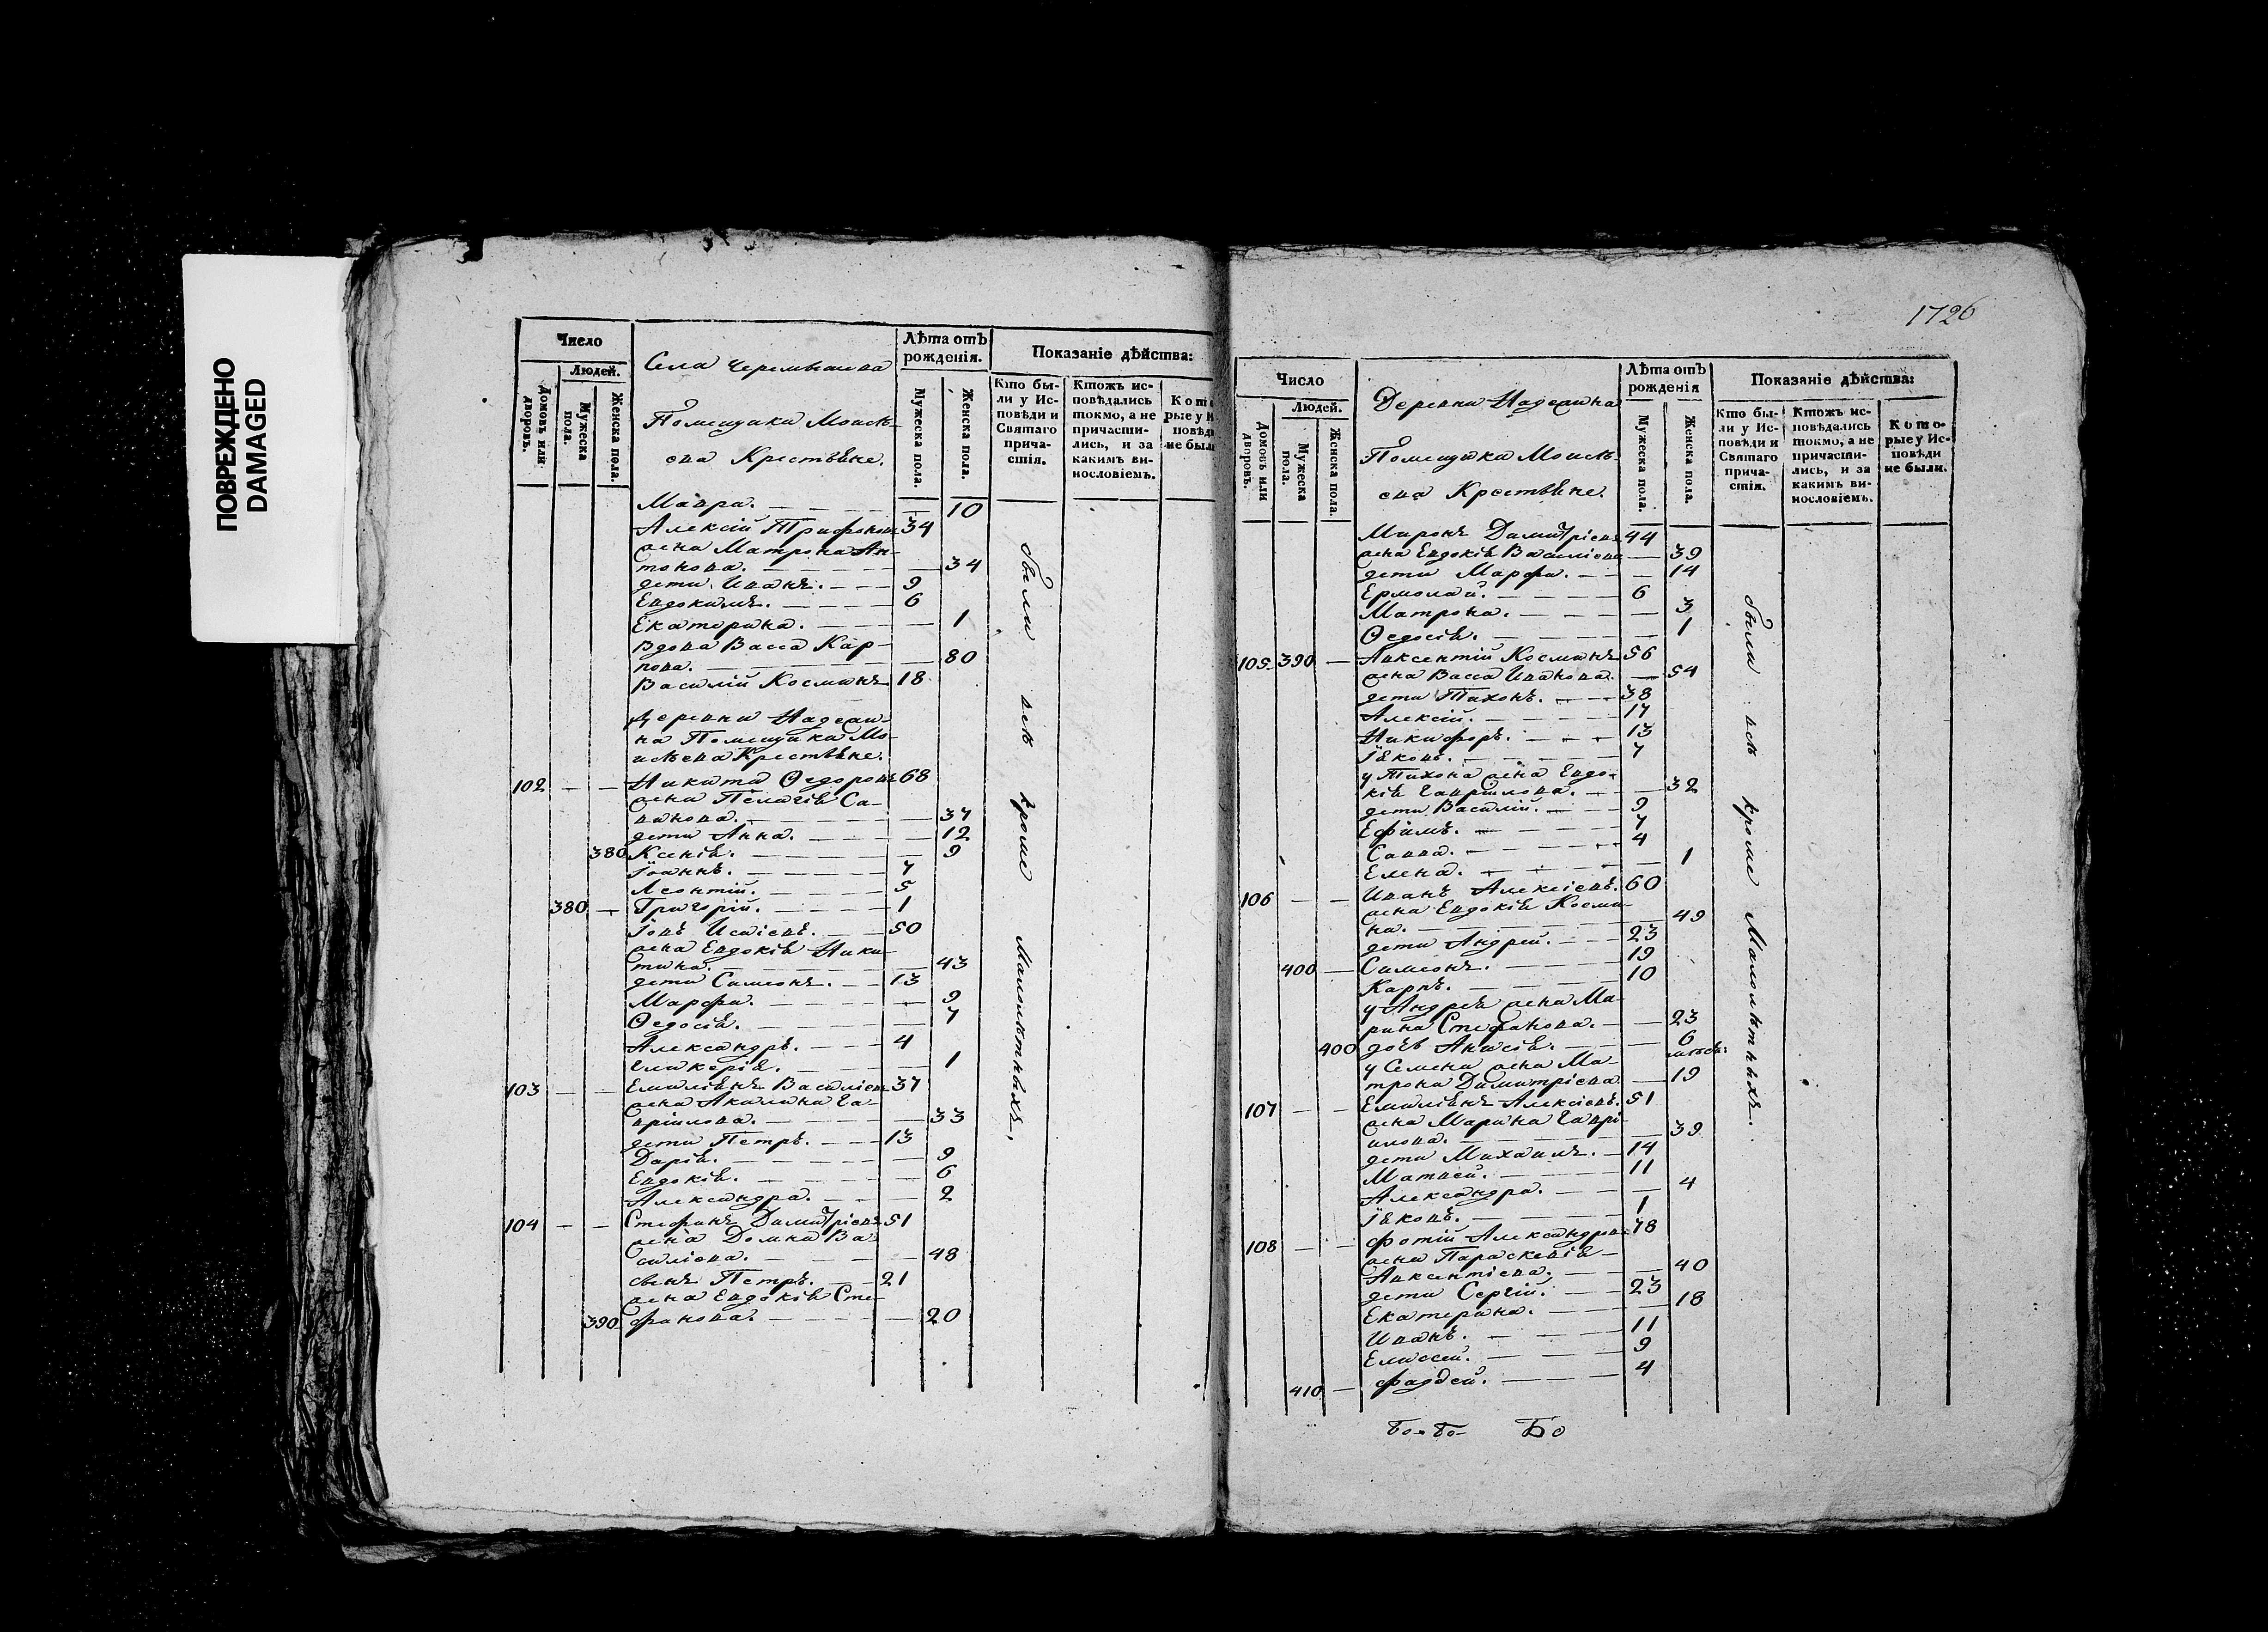 ПОВРЕЖДЕНО
DAMAGED
Число
Людей.
Домовъ или дворовъ.
Мужеска пола.
Женска пола.
Села
Помещика Моисѣ-
ева Крестьяне.
Лѣта отъ рожденія.
Мужеска пола.
Женска пола.
Показаніе дѣйства:
Кто бы-
ли у Ис-
повѣди и
Святаго
прича-
стія.
Ктожъ ис-
повѣдались
токмо, а не
причасти-
лись, и за
какимъ ви-
нословіемъ.
Мавра. 10
Алексій Трифоновъ 34
жена Матрона Ан-
тонова. 34
дети Иванъ. 9
Евдокимъ. 6
Екатерина. 1
Вдова Васса Кар-
пова. 80
Василій Косминъ 18
Деревни Надеаи-
на Помещика Мо-
исѣева Крестьяне.
102 Никита Ѳедоровъ 68
жена Пелагія Са-
винова. 37
дети Анна. 12
380 Ксенія. 9
Іоаннъ. 7
Леонтій. 5
380 Григорій. 1
Іовъ Исаіевъ. 50
жена Евдокія Ники-
тина. 43
дети Симеонъ. 13
Марфа. 9
Ѳедосія. 7
Александръ. 4
Гликерія. 1
103 Емиліянъ Василіевъ 37
жена Акилина Га-
вріилова. 33
дети Петръ. 13
Дарія. 9
Евдокія. 6
Александра. 2
104 Стефанъ Димитріевъ 51
жена Домна Ва-
силіева. 48
сынъ Петръ. 21
жена Евдокія Сте-
390 фанова. 20
были всѣ кроме малолѣтныхъ.
1726
Число
Людей.
Домовъ или дворовъ.
Мужеска пола.
Женска пола.
Деревни
Помещика Моисѣ-
ева Крестьяне.
Лѣта отъ рожденія
Мужеска пола.
Женска пола.
Показаніе дѣйства:
Кто бы-
ли у Ис-
повѣди и
Святаго
прича-
стія.
Ктожъ ис-
повѣдались
токмо, а не
причасти-
лись, и за
какимъ ви-
нословіемъ.
Кото-
рые у Ис-
повѣди
не были.
Миронъ Димитріевъ 44
жена Евдокія Василіева 39
дети Марфа. 14
Ермолай. 6
Матрона. 3
Ѳедосія. 1
105 390 Авксентій Косминъ 56
жена Васса Иванова. 54
дети Тихонъ. 38
Алексій. 17
Никифоръ. 13
Іяковъ. 7
у Тихона жена Евдо-
кія Гавріилова. 32
дети Василій. 9
Ефимъ. 7
Савва. 4
Елена. 1
106 Иванъ Алексіевъ. 60
жена Евдокія Косми-
на. 49
дети Андрей. 23
400 Симеонъ. 19
Карпъ. 10
у Андрея жена Ма-
рина Стефанова. 23
400 дочь Анисія. 6
у Семена жена Ма-
трона Димитріева 19
107 Емиліянъ Алексіевъ. 51
жена Марина Гаврі-
илова. 39
дети Михаилъ. 14
Матвей. 11
Александра. 4
Іяковъ. 1
108 Фотій Александровъ 48
жена Параскевія
Авксентіева. 40
дети Сергій. 23
Екатерина. 18
Иванъ. 11
Елисей. 9
410 Фаддей. 4
были всѣ кроме Малолѣтныхъ.